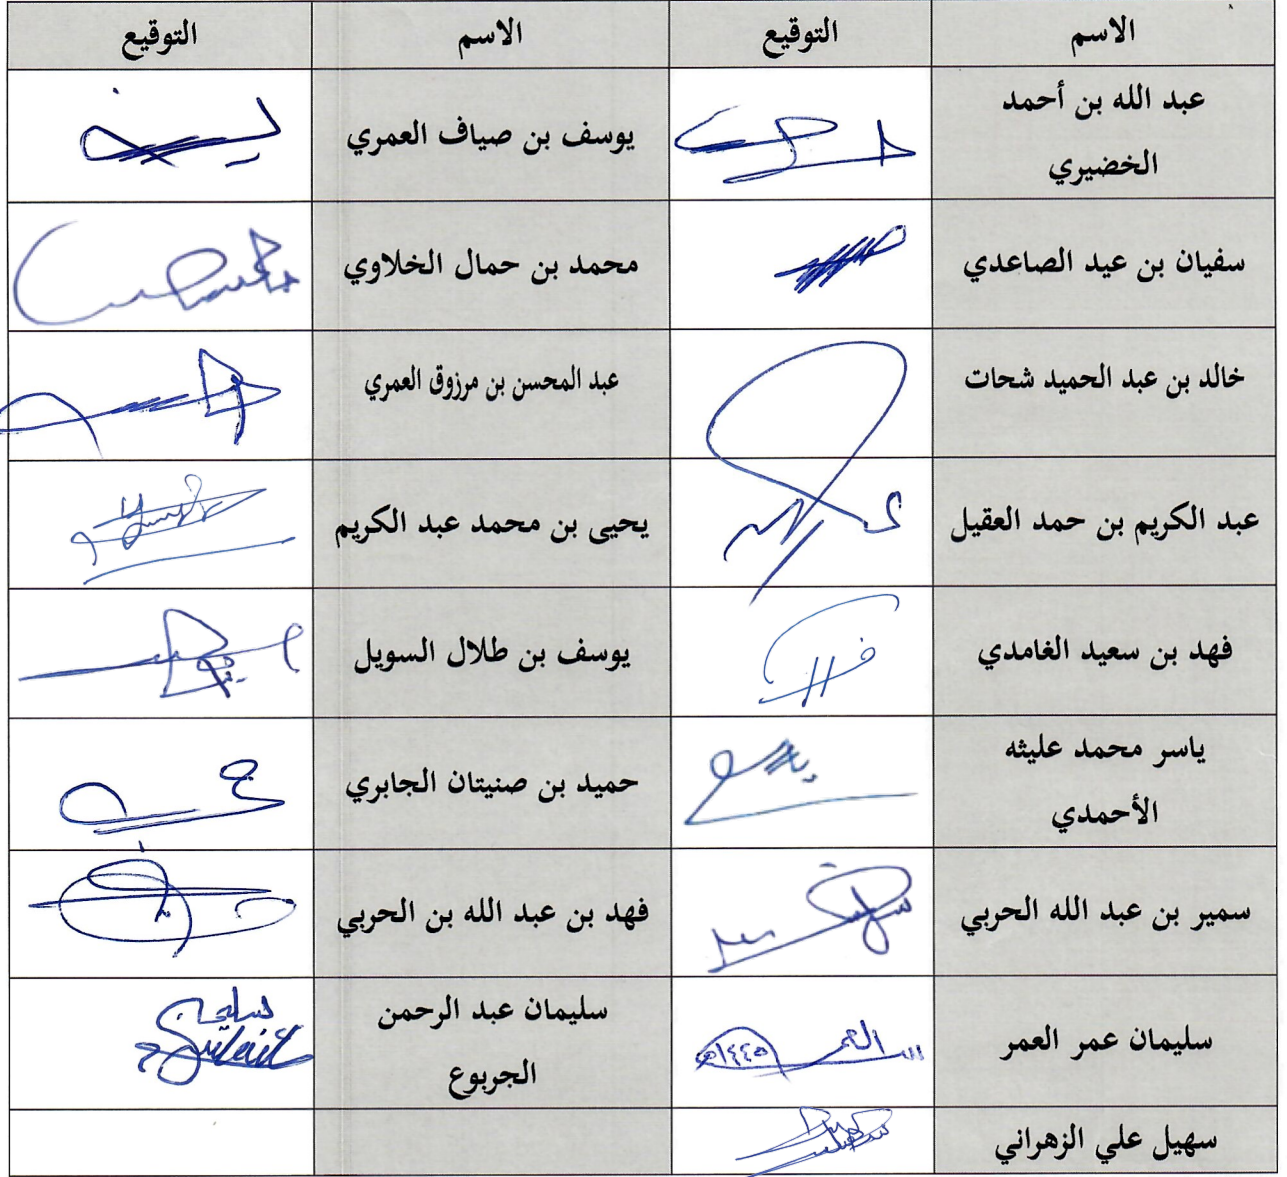 الاسم التوقيع الاسم التوقيع
عبد الله بن أحمد
الخضيري
يوسف بن صياف العمري
سفيان بن عيد الصاعدي
محمد بن حمال الخلاوي
خالد بن عبد الحميد شحات
عبد المحسن بن مرزوق العمري
عبد الكريم بن حمد العقيل
يحيى بن محمد عبد الكريم
فهد بن سعيد الغامدي
يوسف بن طلال السويل
ياسر محمد عليثه
الأحمدي
حميد بن صنيتان الجابري
سمير بن عبد الله الحربي
فهد بن عبد الله بن الحربي
سليمان عمر العمر
العمر
١٤٤٥هـ
سليمان عبد الرحمن
الجربوع
سهيل علي الزهراني